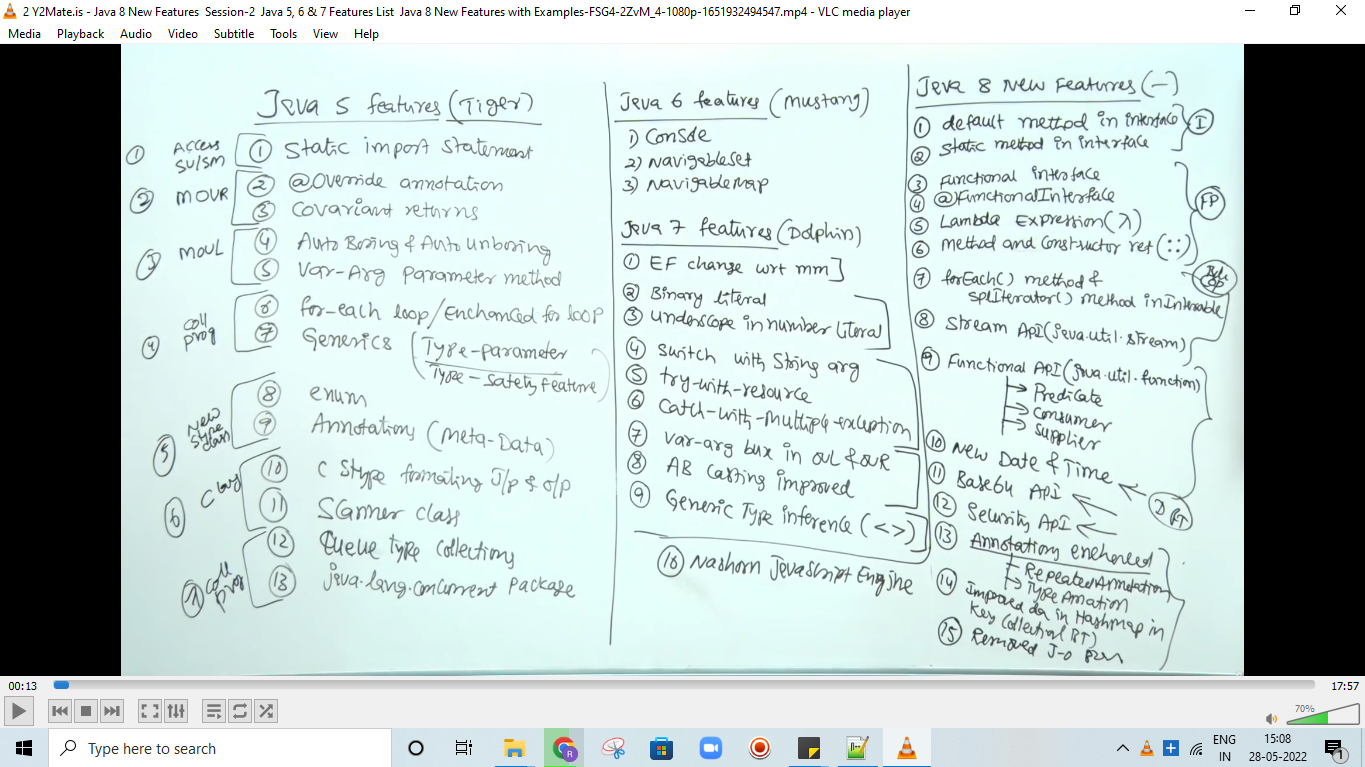 2 Y2Mate.is - Java 8 New Features  Session-2  Java 5, 6 & 7 Features List  Java 8 New Features with Examples-FSG4-2ZvM_4-1080p-1651932494547.mp4 - VLC media player
Media Playback Audio Video Subtitle Tools View Help
Java 5 features (Tiger)
① Access SV/SM
① Static import Statement
② MOVR
② @Override annotation
③ Covariant returns
③ MOVL
④ Auto Boxing & Auto unboxing
⑤ Var-Arg Parameter method
④ Coll prog
⑥ for-each loop/Enchanced for loop
⑦ Generics (Type-parameter
Type-Safety feature)
⑤ New Stype class
⑧ enum
⑨ Annotations (Meta-Data)
⑥
⑩ C Stype formating I/p & o/p
⑪ Scanner class
⑦ Coll
⑫ Queue Type Collections
⑬ java.lang.concurrent Package
Java 6 features (Mustang)
1) Console
2) NavigableSet
3) NavigableMap
Java 7 features (Dolphin)
① EF change wrt mm]
② Binary literal
③ underscope in number literal
④ switch with String arg
⑤ try-with-resource
⑥ Catch-with-Multiple-exception
⑦ var-arg bux in OVL & OVR
⑧ AB Casting improved
⑨ Generic Type inference (<>)
⑯ Nashorn JavaScript Engine
Java 8 New Features (-)
① default method in interface
② Static method in interface
I
③ Functional interface
④ @FunctionalInterface
⑤ Lambda Expression (λ)
⑥ method and Constructor ref (::)
FP
⑦ forEach() method &
splIterator() method in Interable
⑧ Stream API (java.util.stream)
⑨ Functional API (java.util.function)
Predicate
Consumer
Supplier
⑩ New Date & Time
⑪ Base64 API
⑫ Security API
⑬ Annotation enchanced
Repeated Annotation
Type Annation
⑭ Improved in Hashmap in
Key Collection
⑮ Removed
00:13
17:57
70%
Type here to search
ENG
IN
15:08
28-05-2022
1